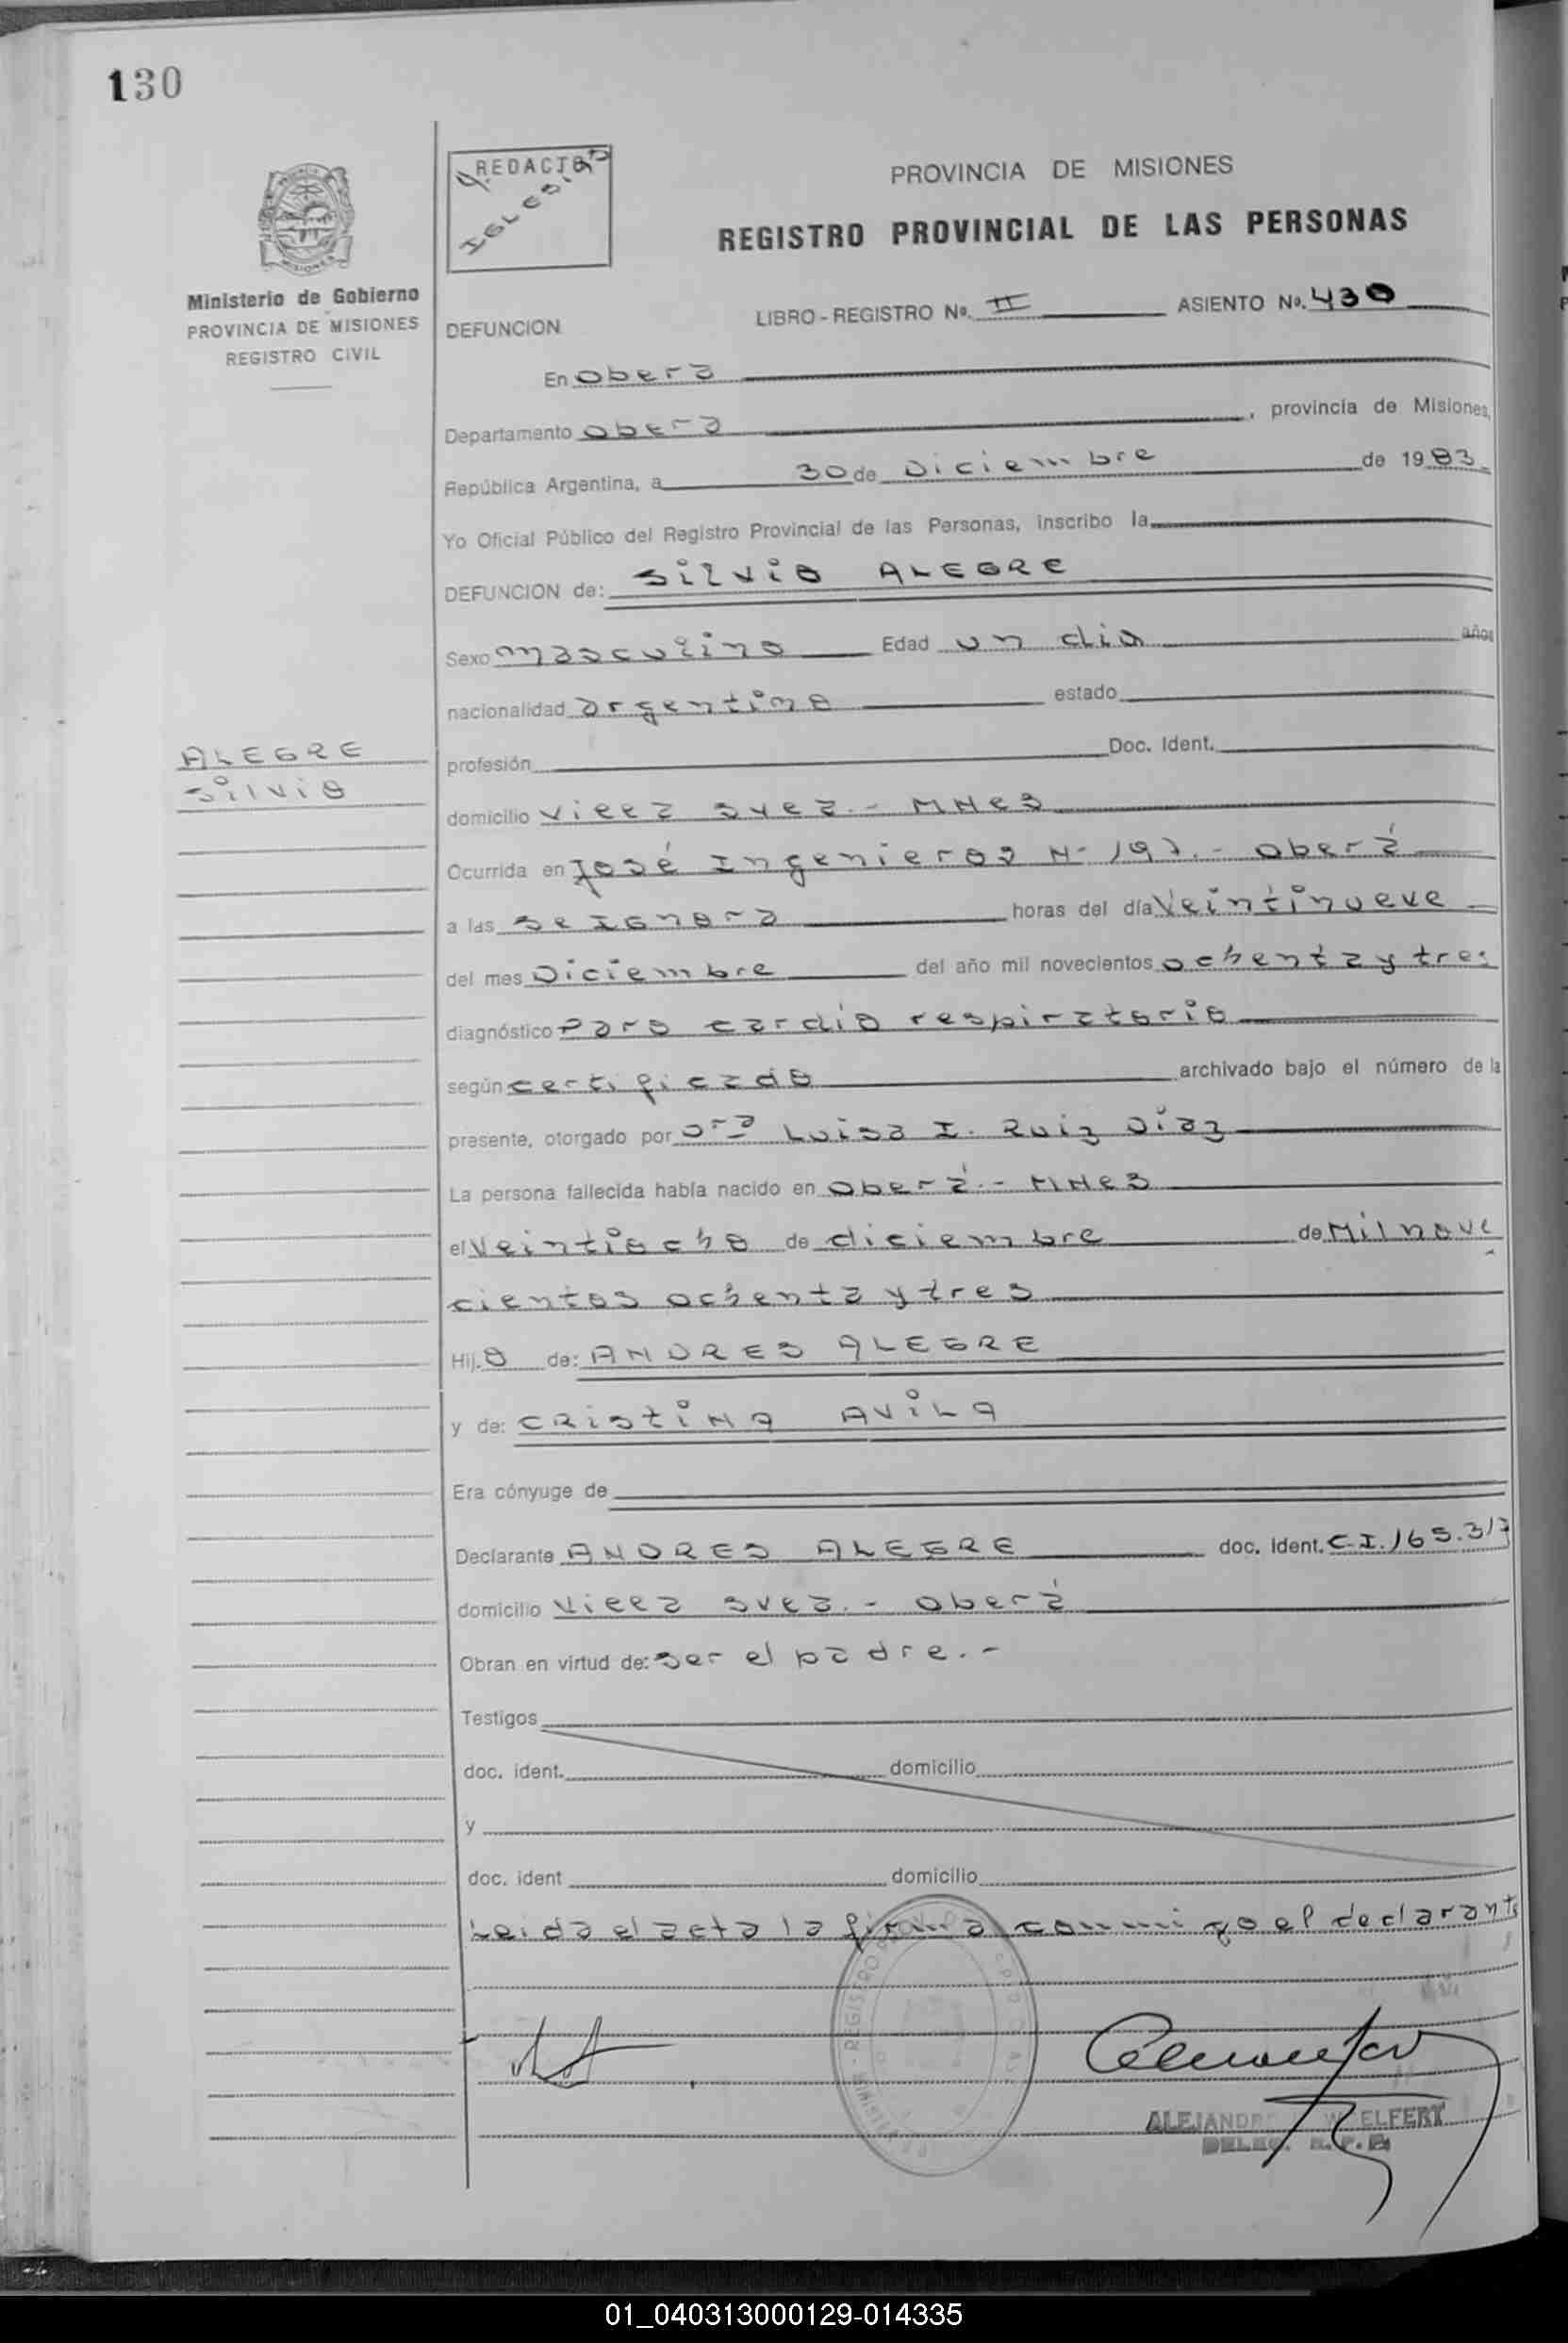 130
REDACTOR
PROVINCIA DE MISIONES
REGISTRO PROVINCIAL DE LAS PERSONAS
MISIONES
Ministerio de Gobierno
PROVINCIA DE MISIONES
REGISTRO CIVIL
LIBRO - REGISTRO No. II ASIENTO No. 430
DEFUNCION
En Obera
Departamento Obera, provincia de Misiones,
República Argentina, a 30 de Diciembre de 1983
Yo Oficial Público del Registro Provincial de las Personas, inscribo la
DEFUNCION de: Silvio ALEGRE
Sexo masculino Edad un dia años
nacionalidad argentina estado
ALEGRE
Silvio
profesión Doc. Ident.
domicilio Villa Svea.- MNES
Ocurrida en José Ingenieros N- 197.- Oberá
a las se ignora horas del día Veintinueve
del mes Diciembre del año mil novecientos ochenta y tres
diagnóstico Paro cardio respiratorio
según certificado archivado bajo el número de la
presente, otorgado por Dra Luisa I. Ruiz Díaz
La persona fallecida había nacido en Oberá.- MNES
el Veintiocho de diciembre de Mil nove
cientos ochenta y tres
Hij.o de: ANDRES ALEGRE
y de: CRISTINA AVILA
Era cónyuge de
Declarante ANDRES ALEGRE doc. Ident. C.I. 165.317
domicilio Villa Svea.- Oberá
Obran en virtud de: ser el padre.-
Testigos
doc. ident. domicilio
y
doc. ident domicilio
Leida el acta la firma conmigo el declarante
REGISTRO
ALEJANDR W ELFERT
DELEG. R.P.P.
01_040313000129-014335